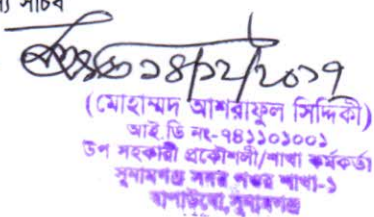 সচিব
১৪/১২/২০১৭
(মোহাম্মদ আশরাফুল সিদ্দিকী)
আই.ডি নং-৭৪১১০১০০১
উপ সহকারী প্রকৌশলী/শাখা কর্মকর্তা
সুনামগঞ্জ সদর পওর শাখা-১
বাপাউবো,সুনামগঞ্জ